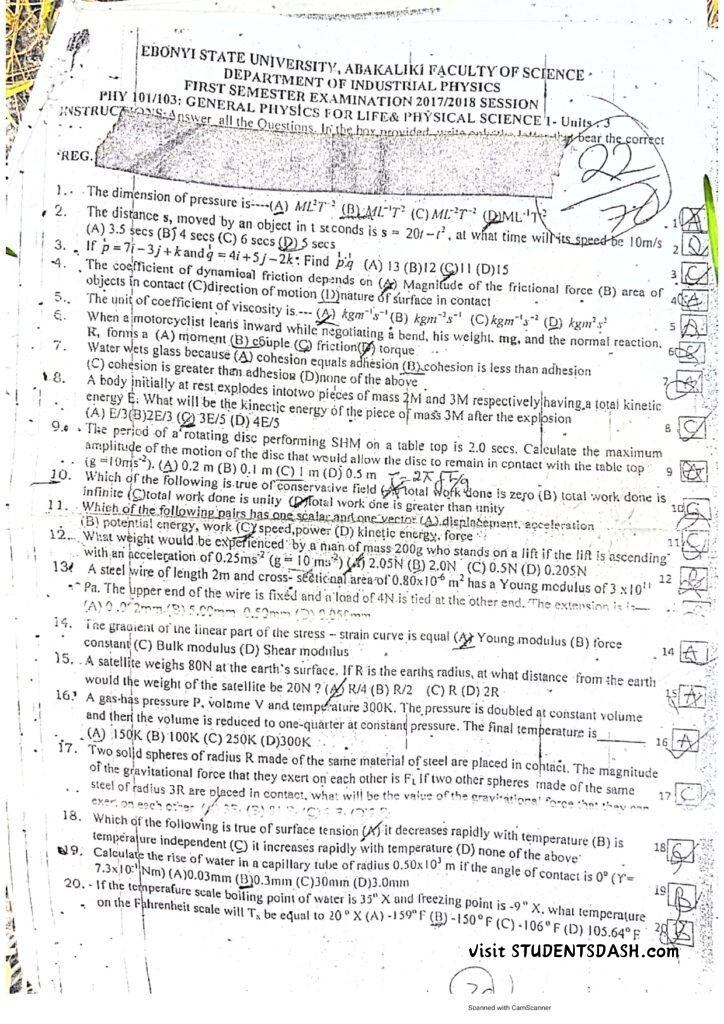 EBONYI STATE UNIVERSITY, ABAKALIKI FACULTY OF SCIENCE
DEPARTMENT OF INDUSTRIAL PHYSICS
FIRST SEMESTER EXAMINATION 2017/2018 SESSION
PHY 101/103: GENERAL PHYSICS FOR LIFE& PHYSICAL SCIENCE 1- Units : 3
INSTRUCTIONS: Answer all the Questions. In the box provided, write only the letter that bear the correct
REG.
22/70
1. The dimension of pressure is----(A) ML²T⁻² (B) ML⁻¹T² (C) ML⁻²T⁻² (D) ML⁻¹T⁻²
2. The distance s, moved by an object in t seconds is s = 20t – t², at what time will its speed be 10m/s
(A) 3.5 secs (B) 4 secs (C) 6 secs (D) 5 secs
3. If p = 7i – 3j + k and q = 4i + 5j – 2k: Find p.q (A) 13 (B)12 (C)11 (D)15
4. The coefficient of dynamical friction depends on (A) Magnitude of the frictional force (B) area of
objects in contact (C)direction of motion (D)nature of surface in contact
5. The unit of coefficient of viscosity is.--- (A) kgm⁻¹s⁻¹ (B) kgm⁻²s⁻¹ (C) kgm⁻¹s⁻² (D) kgm²s²
6. When a motorcyclist leans inward while negotiating a bend, his weight, mg, and the normal reaction,
R, forms a (A) moment (B) couple (C) friction(D) torque
7. Water wets glass because (A) cohesion equals adhesion (B) cohesion is less than adhesion
(C) cohesion is greater than adhesion (D)none of the above
8. A body initially at rest explodes intotwo pieces of mass 2M and 3M respectively having a total kinetic
energy E. What will be the kinectic energy of the piece of mass 3M after the explosion
(A) E/3(B)2E/3 (C) 3E/5 (D) 4E/5
9. The period of a rotating disc performing SHM on a table top is 2.0 secs. Calculate the maximum
amplitude of the motion of the disc that would allow the disc to remain in contact with the table top
(g =10ms⁻²). (A) 0.2 m (B) 0.1 m (C) 1 m (D) 0.5 m
10. Which of the following is true of conservative field (A) total work done is zero (B) total work done is
infinite (C)total work done is unity (D)Total work done is greater than unity
11. Which of the following pairs has one scalar and one vector (A) displacement, acceleration
(B) potential energy, work (C) speed,power (D) kinetic energy, force
12. What weight would be experienced by a man of mass 200g who stands on a lift if the lift is ascending
with an acceleration of 0.25ms⁻² (g = 10 ms⁻²) (A) 2.05N (B) 2.0N (C) 0.5N (D) 0.205N
13. A steel wire of length 2m and cross- sectional area of 0.80x10⁻⁶ m² has a Young modulus of 3 x10¹¹
Pa. The upper end of the wire is fixed and a load of 4N is tied at the other end. The extension is
14. The gradient of the linear part of the stress – strain curve is equal (A) Young modulus (B) force
constant (C) Bulk modulus (D) Shear modulus
15. A satellite weighs 80N at the earth's surface. If R is the earths radius, at what distance from the earth
would the weight of the satellite be 20N ? (A) R/4 (B) R/2 (C) R (D) 2R
16. A gas has pressure P, volume V and temperature 300K. The pressure is doubled at constant volume
and then the volume is reduced to one-quarter at constant pressure. The final temperature is______
(A) 150K (B) 100K (C) 250K (D)300K
17. Two solid spheres of radius R made of the same material of steel are placed in contact. The magnitude
of the gravitational force that they exert on each other is F. If two other spheres made of the same
steel of radius 3R are placed in contact, what will be the value of the gravitational force that they can
exert on each other
18. Which of the following is true of surface tension (A) it decreases rapidly with temperature (B) is
temperature independent (C) it increases rapidly with temperature (D) none of the above
19. Calculate the rise of water in a capillary tube of radius 0.50x10³ m if the angle of contact is 0⁰ (Y=
7.3x10⁻¹ Nm) (A)0.03mm (B)0.3mm (C)30mm (D)3.0mm
20. - If the temperature scale boiling point of water is 35° X and freezing point is -9° X, what temperature
on the Fahrenheit scale will Tₓ be equal to 20 ° X (A) -159° F (B) -150° F (C) -106° F (D) 105.64° F
visit STUDENTSDASH.com
Scanned with CamScanner